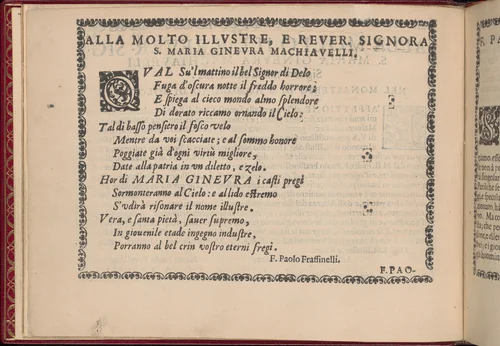 ALLA MOLTO ILLVSTRE, E REVER. SIGNORA
S. MARIA GINEVRA MACHIAVELLI.
QVAL Su'l mattino il bel Signor di Delo
Fuga d'oscura notte il freddo horrore;
E spiega al cieco mondo almo splendore
Di dorato riccamo ornando il Cielo:
Tal di basso pensiero il fosco velo
Mentre da voi scacciate; e al sommo honore
Poggiate già d'ogni virtù migliore,
Date alla patria in vn diletto, e zelo.
Hor di MARIA GINEVRA i casti pregi
Sormonteranno al Cielo: e al lido estremo
S'vdirà risonare il nome illustre.
Vera, e santa pietà, sauer supremo,
In giouenile etade ingegno industre,
Porranno al bel crin vostro eterni fregi.
F. Paolo Fraffinelli.
F. PAO-